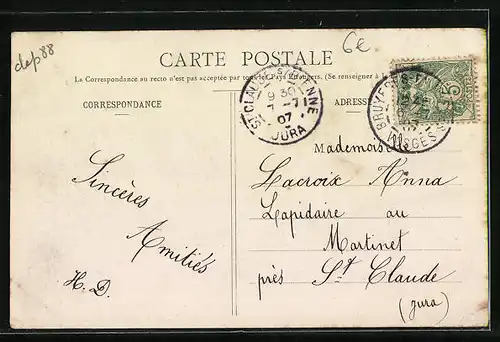 dep88
6€
CARTE POSTALE
La Correspondance au recto n'est pas acceptée par tous les Pays Étrangers. (Se renseigner à
CORRESPONDANCE
ADRESSE
ST CLAUDE
9 30
-7
07
JURA
BRUYERES
07
VOSGES
5
Mademoiselle
Lacroix Anna
Lapidaire au
Martinet
près St Claude
(jura)
Sincères
Amitiés
H. D.